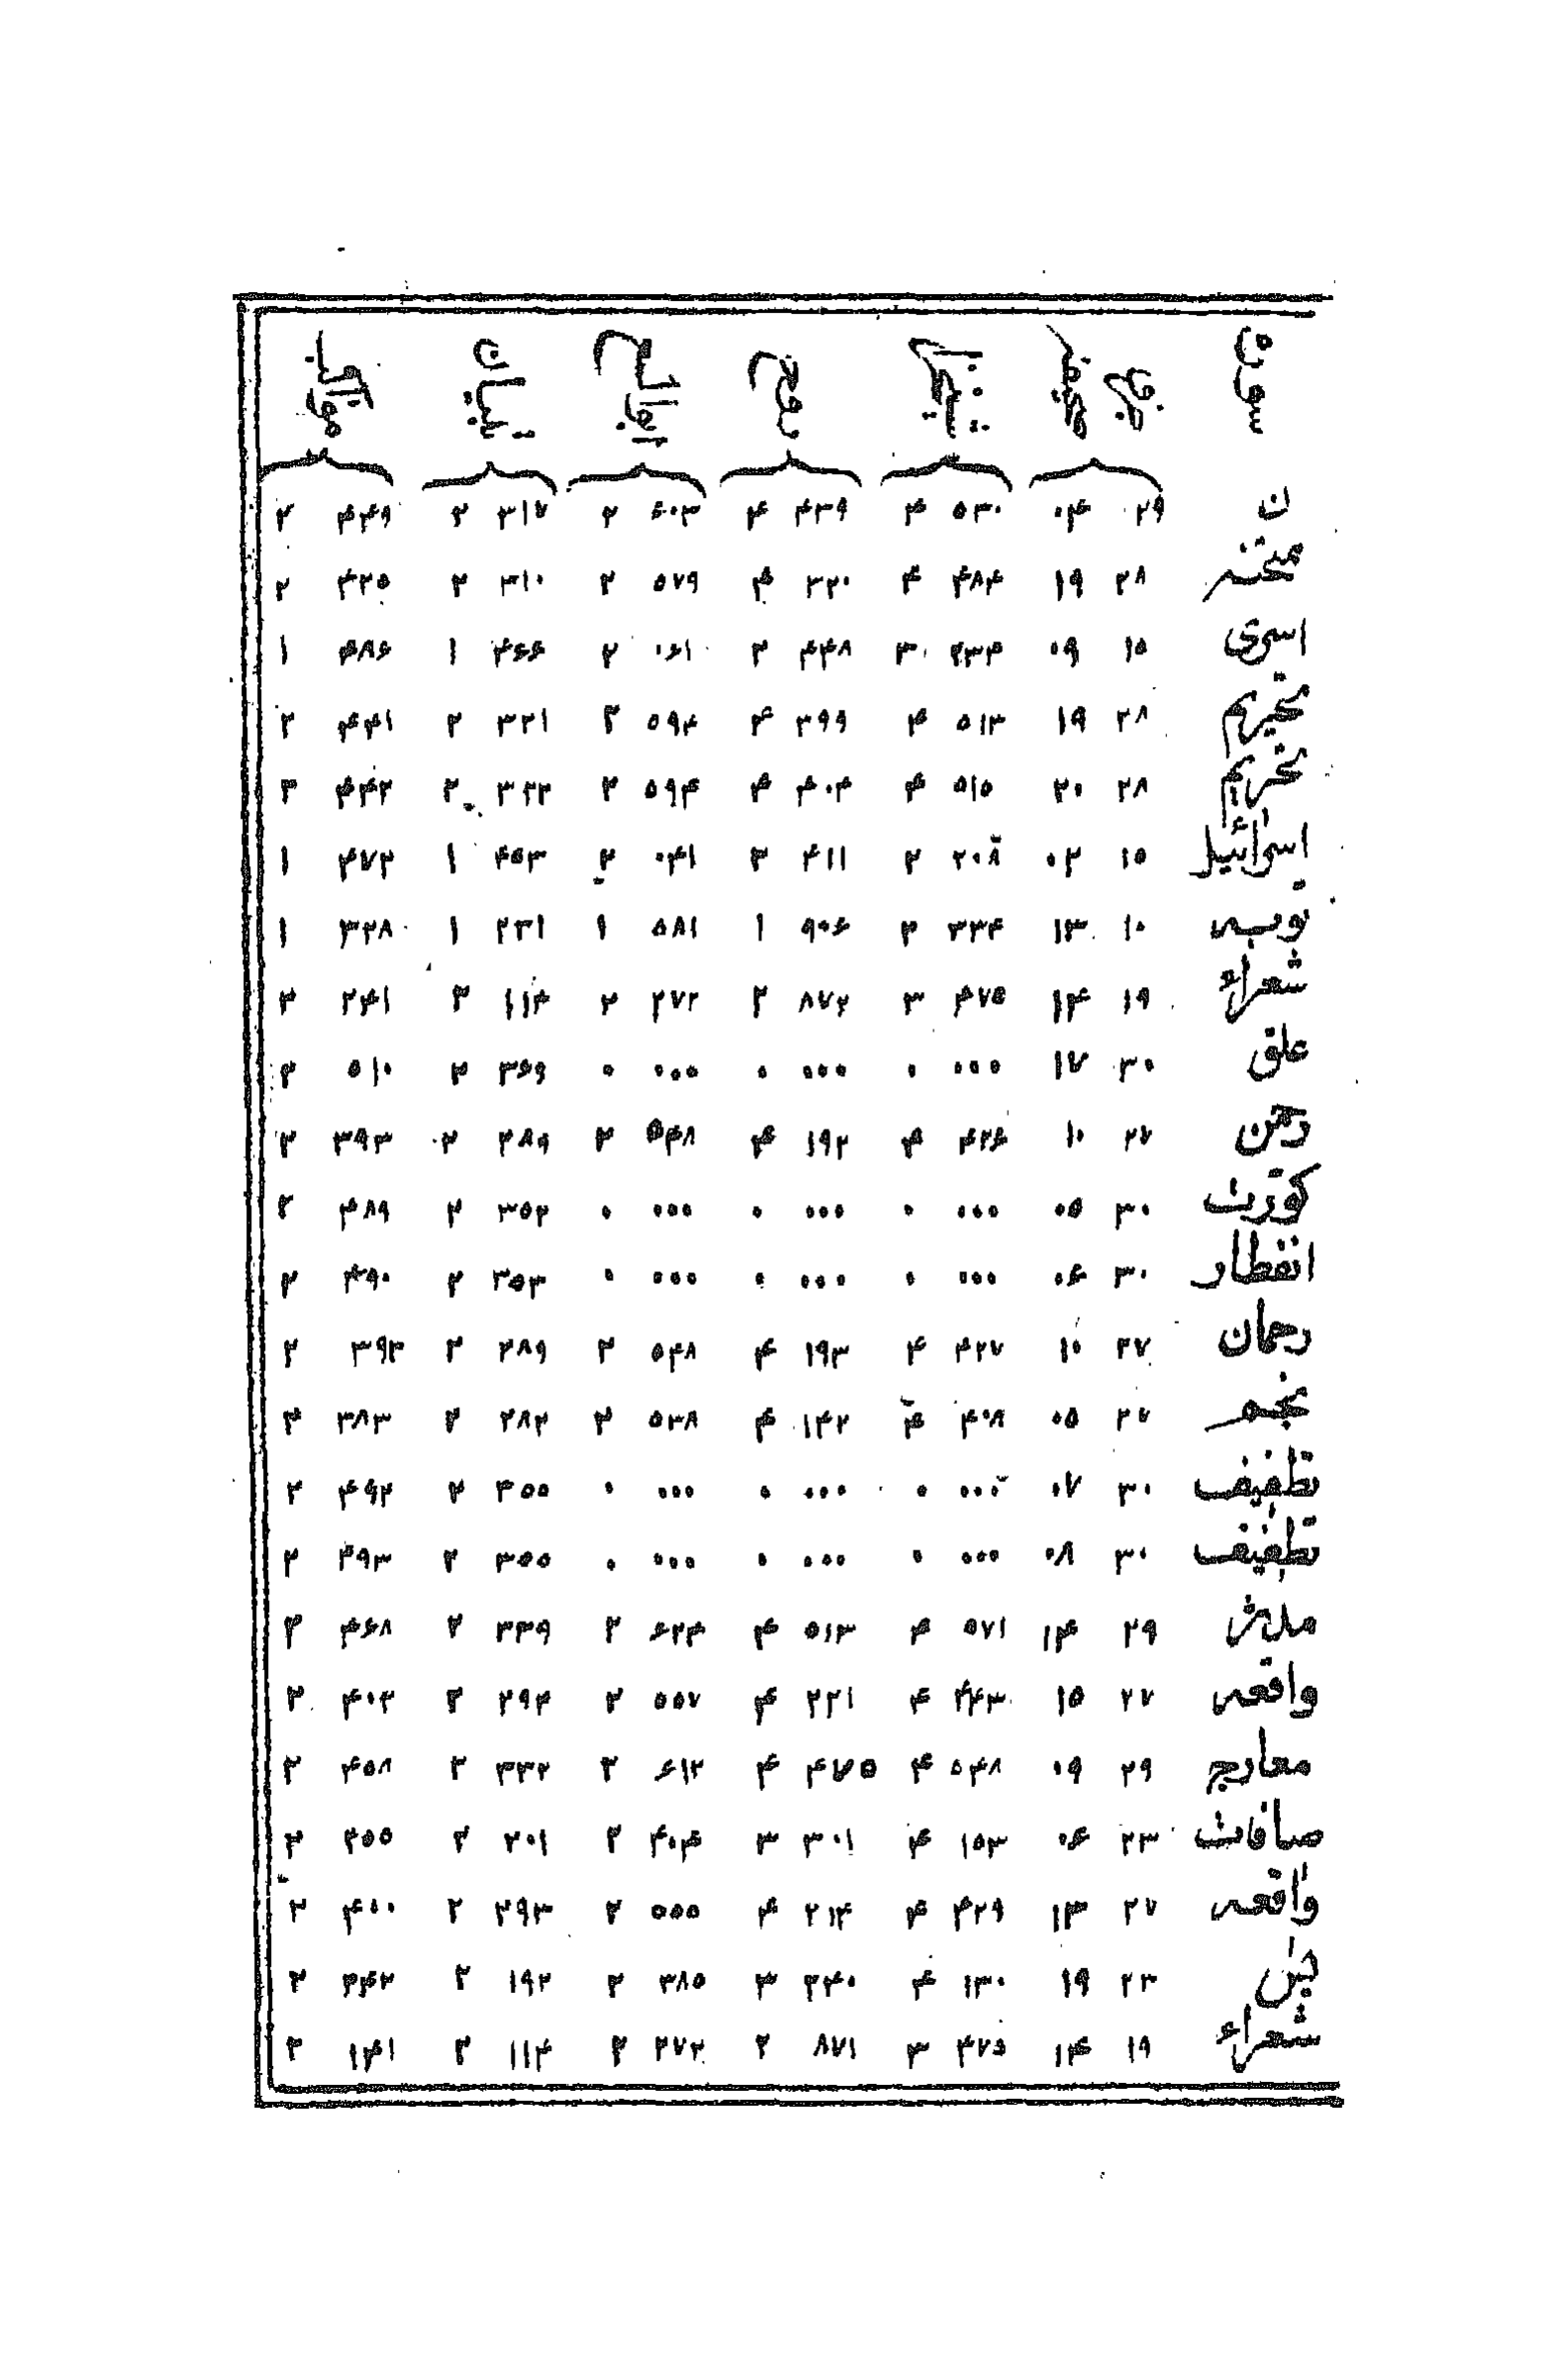 ن ۲۹ ۰۴ ۵۳۰ ۴ ۴۳۹ ۴ ۶۰۳ ۲ ۳۱۷ ۲ ۴۴۹ ۲
ممتحنه ۲۸ ۱۹ ۴۸۴ ۴ ۳۲۰ ۴ ۵۷۹ ۲ ۳۱۰ ۲ ۴۲۵ ۲
اسری ۱۵ ۰۹ ۲۳۴ ۳ ۴۴۸ ۲ ۰۶۱ ۲ ۴۶۶ ۱ ۴۸۶ ۱
تحریم ۲۸ ۱۹ ۵۱۳ ۴ ۳۹۹ ۴ ۵۹۴ ۲ ۳۲۱ ۲ ۴۴۱ ۲
تحریم ۲۸ ۲۰ ۵۱۵ ۴ ۴۰۴ ۴ ۵۹۴ ۲ ۳۲۲ ۲ ۴۴۲ ۲
اسرائیل ۱۵ ۰۲ ۲۰۸ ۲ ۴۱۱ ۲ ۰۴۱ ۲ ۴۵۳ ۱ ۴۷۲ ۱
توبه ۱۰ ۱۳ ۳۳۴ ۲ ۹۰۶ ۱ ۵۸۱ ۱ ۲۳۱ ۱ ۳۲۸ ۱
شعراء ۱۹ ۱۴ ۴۷۵ ۳ ۸۷۲ ۲ ۲۷۲ ۲ ۱۱۴ ۲ ۲۴۱ ۲
علق ۳۰ ۱۷ ۰۰۰ ۰ ۰۰۰ ۰ ۰۰۰ ۰ ۳۶۹ ۲ ۵۱۰ ۲
رحمن ۲۷ ۱۰ ۴۲۶ ۴ ۱۹۲ ۴ ۵۴۸ ۲ ۲۸۹ ۲ ۳۹۳ ۲
کورت ۳۰ ۰۵ ۰۰۰ ۰ ۰۰۰ ۰ ۰۰۰ ۰ ۳۵۲ ۲ ۴۸۹ ۲
انفطار ۳۰ ۰۶ ۰۰۰ ۰ ۰۰۰ ۰ ۰۰۰ ۰ ۳۵۳ ۲ ۴۹۰ ۲
رحمان ۲۷ ۱۰ ۴۲۷ ۴ ۱۹۳ ۴ ۵۴۸ ۲ ۲۸۹ ۲ ۳۹۳ ۲
نجم ۲۷ ۰۵ ۴۰۸ ۴ ۱۴۲ ۴ ۵۳۸ ۲ ۲۸۲ ۲ ۳۸۳ ۲
تطفیف ۳۰ ۰۷ ۰۰۰ ۰ ۰۰۰ ۰ ۰۰۰ ۰ ۳۵۵ ۲ ۴۹۲ ۲
تطفیف ۳۰ ۰۸ ۰۰۰ ۰ ۰۰۰ ۰ ۰۰۰ ۰ ۳۵۵ ۲ ۴۹۳ ۲
مدثر ۲۹ ۱۴ ۵۷۱ ۴ ۵۱۳ ۴ ۶۲۴ ۲ ۳۳۹ ۲ ۴۶۸ ۲
واقعه ۲۷ ۱۵ ۴۴۳ ۴ ۲۲۱ ۴ ۵۵۷ ۲ ۲۹۴ ۲ ۴۰۲ ۲
معارج ۲۹ ۰۹ ۵۴۸ ۴ ۴۷۵ ۴ ۶۱۲ ۲ ۳۳۲ ۲ ۴۵۸ ۲
صافات ۲۳ ۰۶ ۱۵۳ ۴ ۳۰۱ ۳ ۴۰۴ ۲ ۲۰۱ ۲ ۲۵۵ ۲
واقعه ۲۷ ۱۳ ۴۲۹ ۴ ۲۱۴ ۴ ۵۵۵ ۲ ۲۹۳ ۲ ۴۰۰ ۲
یس ۲۳ ۱۹ ۱۳۰ ۴ ۲۴۰ ۳ ۳۸۵ ۲ ۱۹۲ ۲ ۲۴۲ ۲
شعراء ۱۹ ۱۴ ۴۷۵ ۳ ۸۷۱ ۲ ۲۷۲ ۲ ۱۱۴ ۲ ۱۴۱ ۲